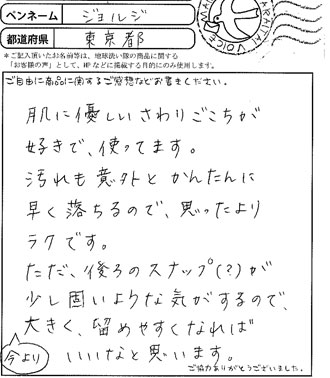 ペンネーム ジョルジ
都道府県 東京都
＊ご記入頂いたお名前等は、地球洗い隊の商品に関する
「お客様の声」として、HPなどに掲載する目的にのみ使用します。
ご自由に商品に関するご感想などお書きください。
肌に優しいさわりごこちが
好きで、使ってます。
汚れも意外とかんたんに
早く落ちるので、思ったより
ラクです。
ただ、後ろのスナップ(?)が
少し固いような気がするので、
大きく、留めやすくなれば
今より
いいなと思います。
ご協力ありがとうございました。